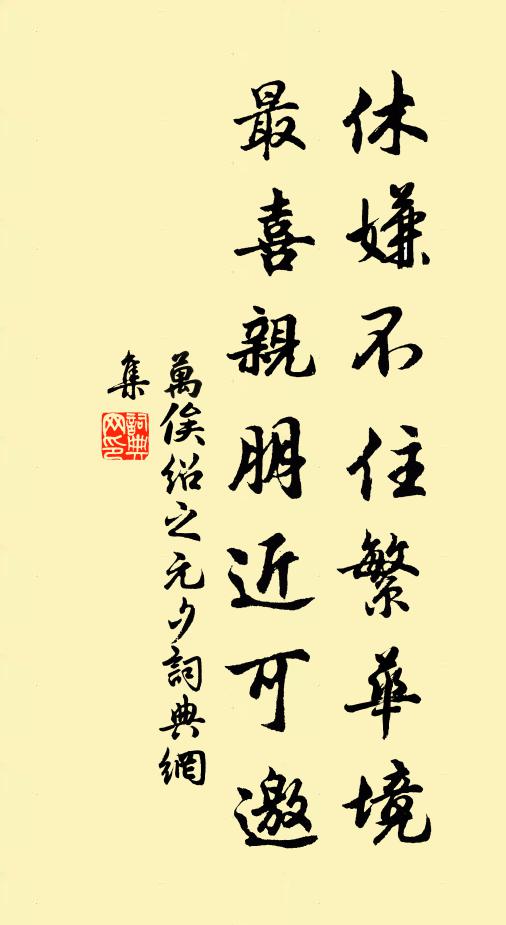 休嫌不住繁華境
最喜親朋近可邀
萬俟紹之元夕詞典網
集
詞典網印